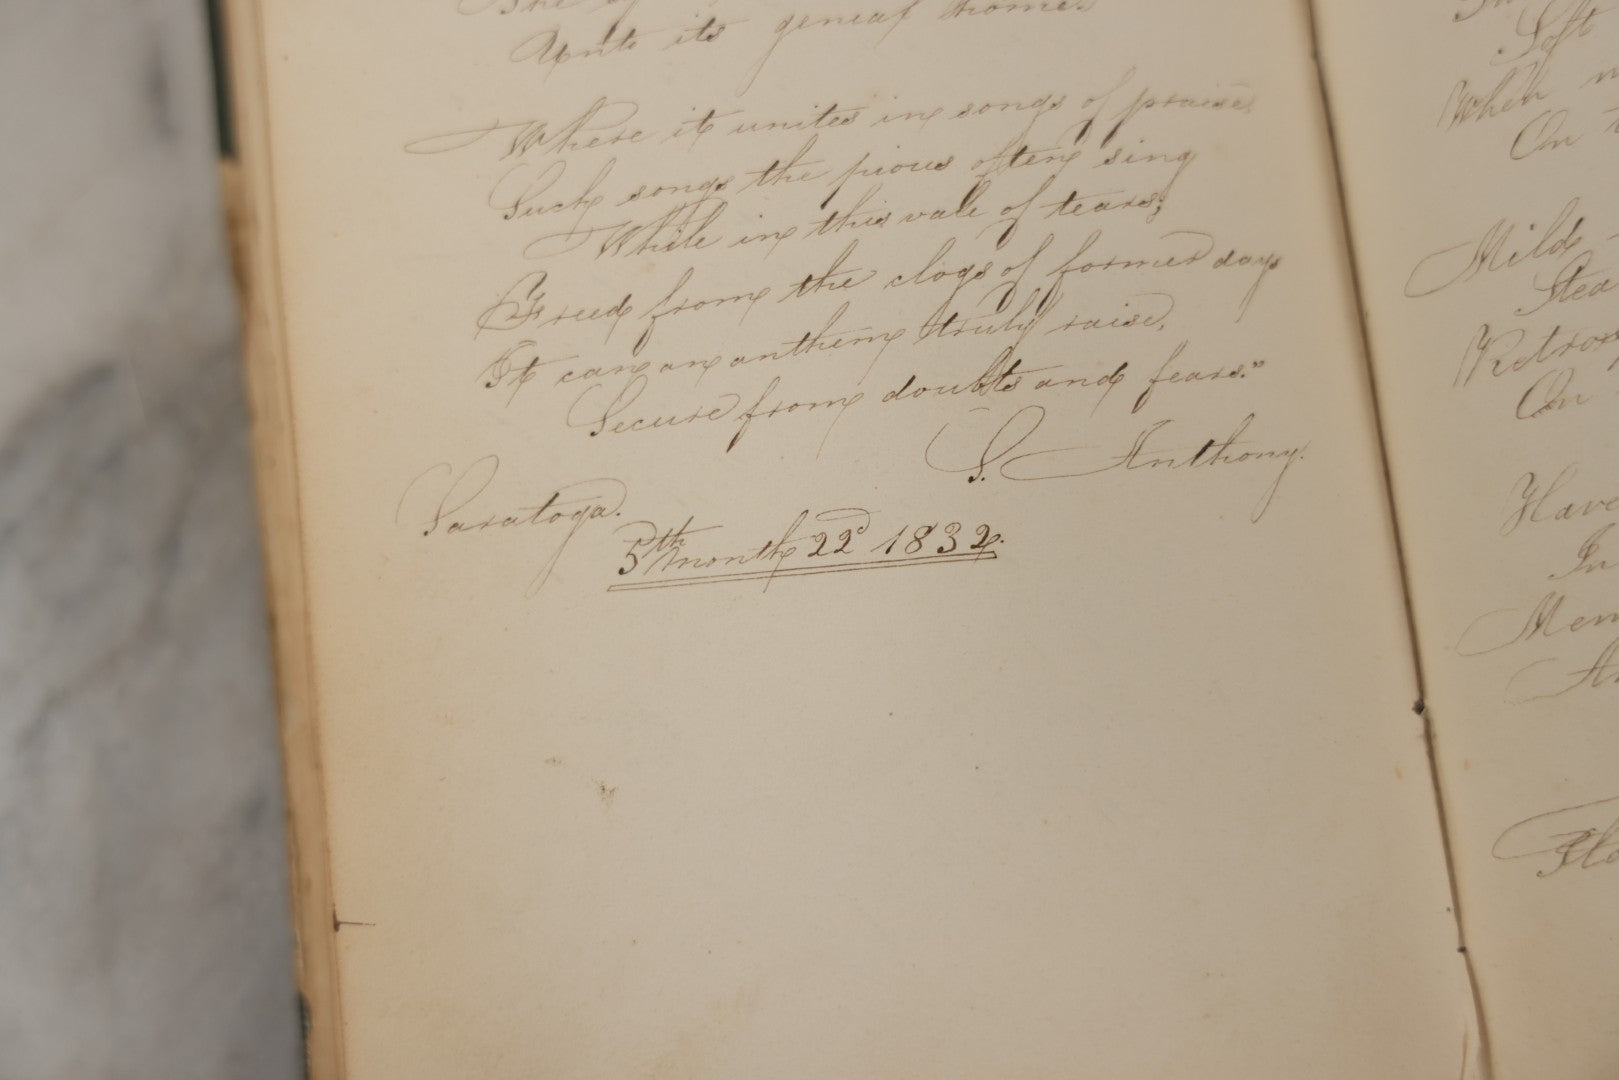 Unto its genial home.
Where it unites in songs of praise,
Such songs the pious often sing
While in this vale of tears;
Freed from the clogs of former days
It can an anthem truly raise,
Secure from doubts and fears."
S. Anthony.
Saratoga.
5th month 22d 1832.
Soft
When
On
Mild
Stea
Retros
On
Have
In
Mem